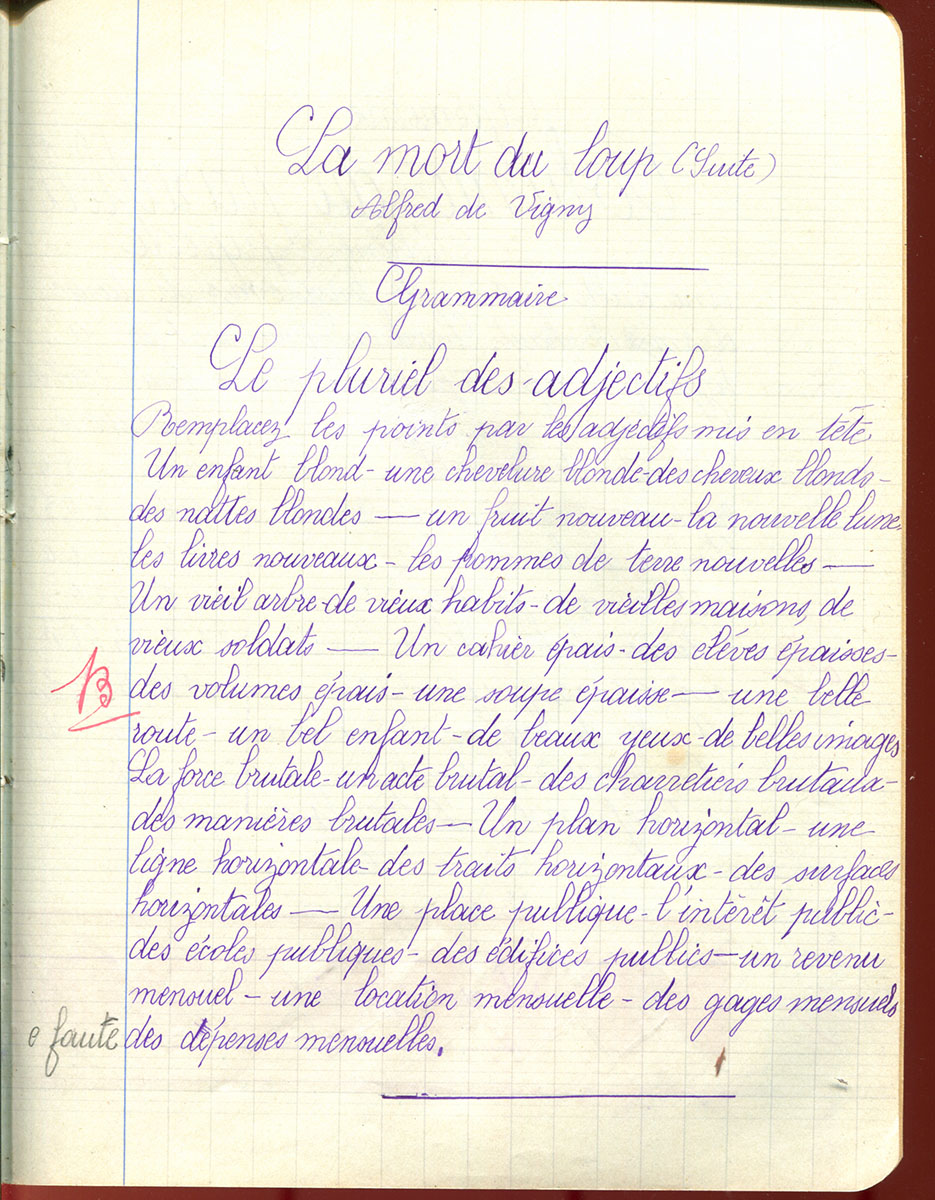 La mort du loup (Suite)
Alfred de Vigny
Grammaire
Le pluriel des adjectifs
Remplacez les points par les adjectifs mis en tête
Un enfant blond - une chevelure blonde - des cheveux blonds -
des nattes blondes — un fruit nouveau - la nouvelle lune
les livres nouveaux - les pommes de terre nouvelles —
Un vieil arbre - de vieux habits - de vieilles maisons, de
vieux soldats — Un cahier épais - des élèves épaisses -
des volumes épais - une soupe épaisse — une belle
route - un bel enfant - de beaux yeux - de belles images
La force brutale - un acte brutal - des charretiers brutaux -
des manières brutales — Un plan horizontal - une
ligne horizontale - des traits horizontaux - des surfaces
horizontales — Une place publique - l'intérêt public -
des écoles publiques - des édifices publics — un revenu
mensuel - une location mensuelle - des gages mensuels
e faute des dépenses mensuelles.